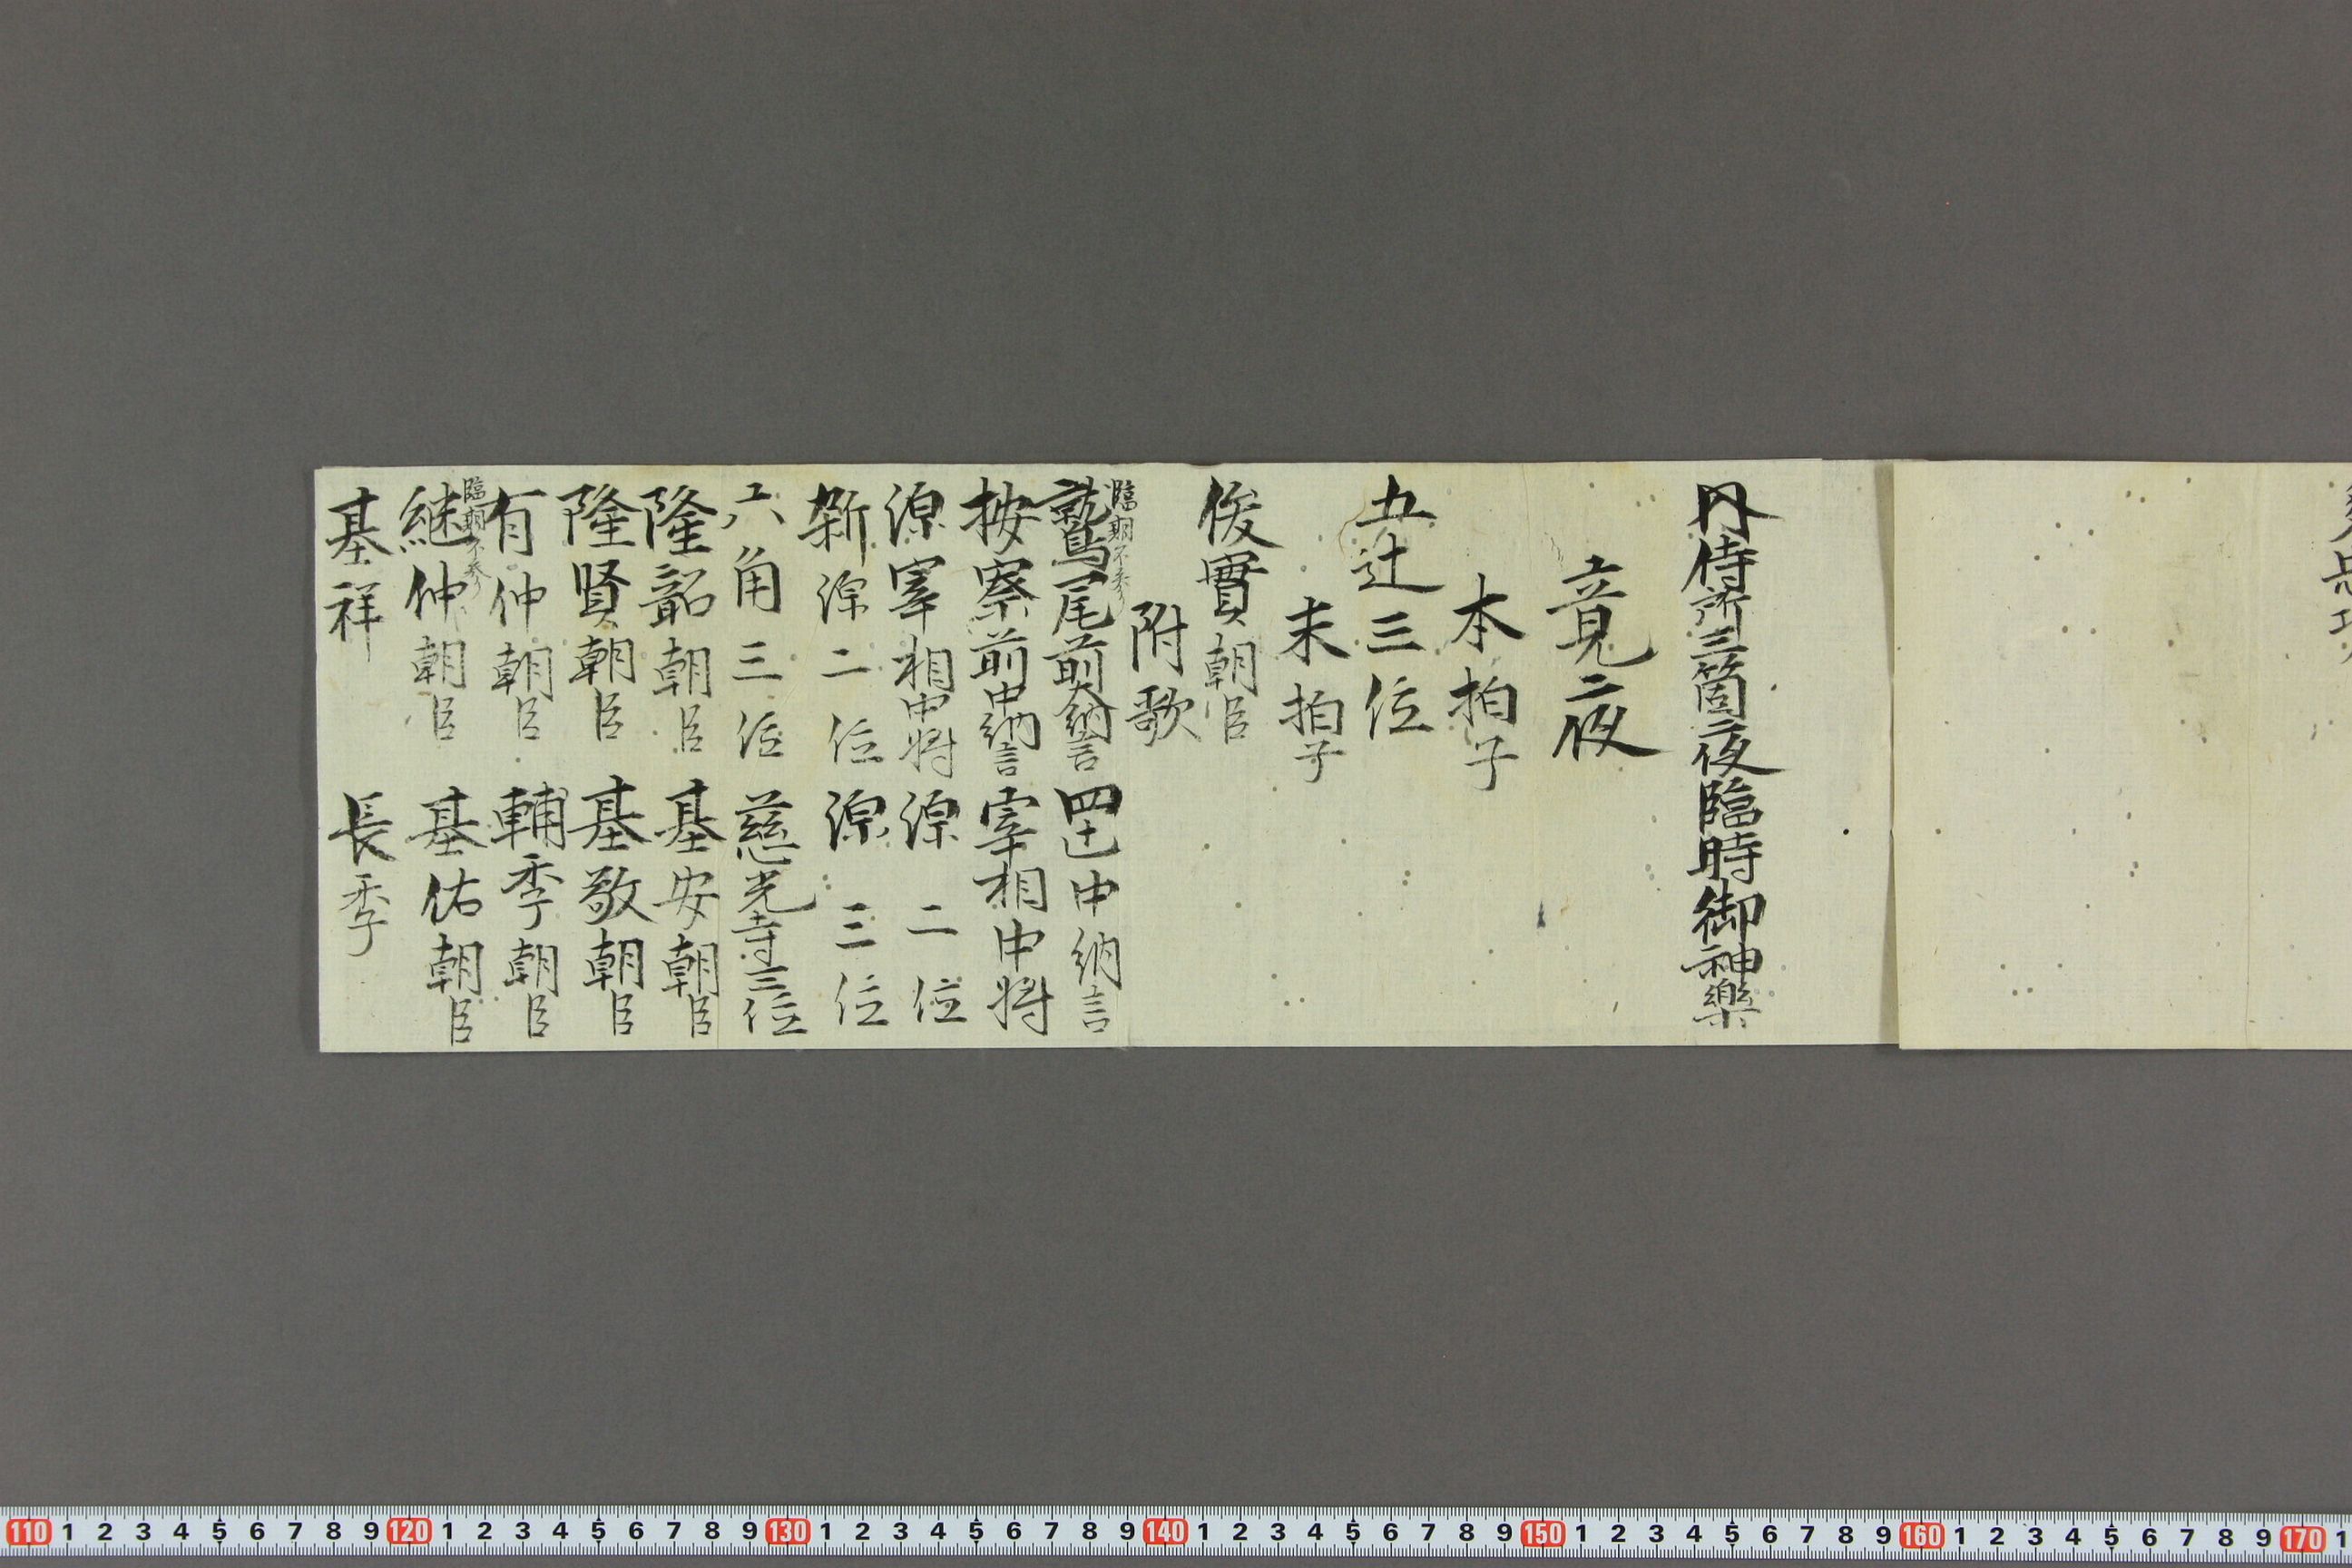 内侍所三箇夜臨時御神樂
竟夜
本拍子
五辻三位
末拍子
俊實朝臣
附歌
臨期不参
鷲尾前大納言 四辻中納言
按察前中納言 宰相中将
源宰相中将 源二位
新源二位 源三位
六角三位 慈光寺三位
隆韶朝臣 基安朝臣
隆賢朝臣 基敬朝臣
有仲朝臣 輔季朝臣
臨期不参
継仲朝臣 基佑朝臣
基祥 長季
110 1 2 3 4 5 6 7 8 9 120 1 2 3 4 5 6 7 8 9 130 1 2 3 4 5 6 7 8 9 140 1 2 3 4 5 6 7 8 9 150 1 2 3 4 5 6 7 8 9 160 1 2 3 4 5 6 7 8 9 170 1